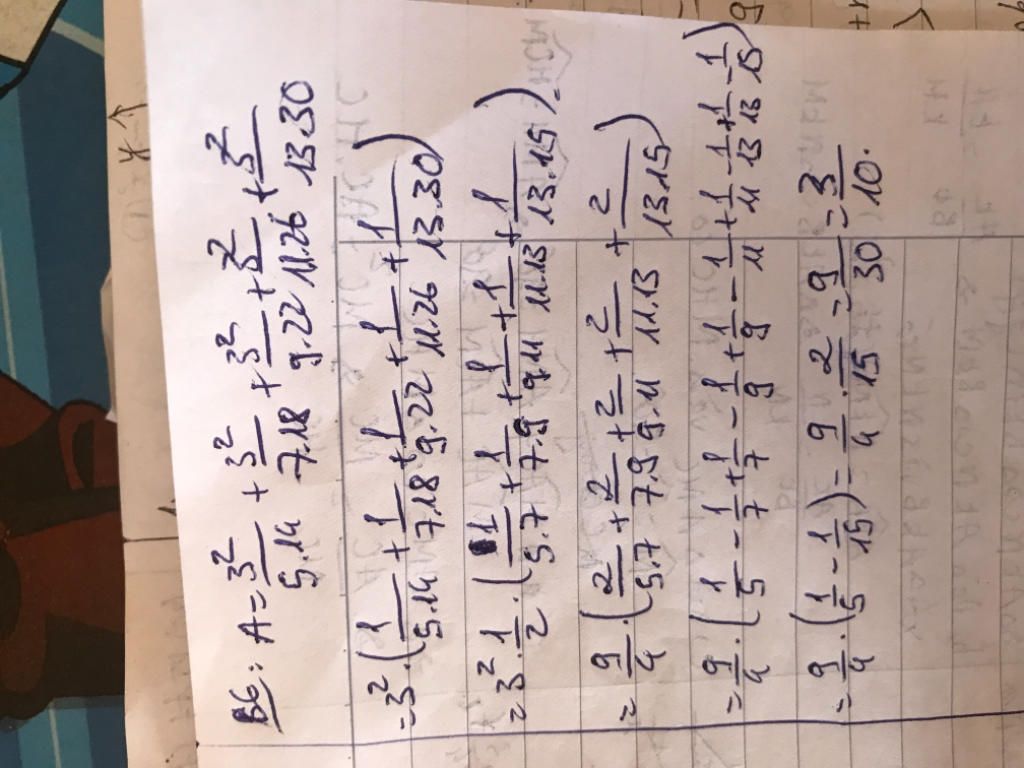 B6: A = 3²/5.14 + 3²/7.18 + 3²/9.22 + 3²/11.26 + 3²/13.30
= 3².(1/5.14 + 1/7.18 + 1/9.22 + 1/11.26 + 1/13.30)
= 3².1/2.(1/5.7 + 1/7.9 + 1/9.11 + 1/11.13 + 1/13.15)
= 9/4.(2/5.7 + 2/7.9 + 2/9.11 + 2/11.13 + 2/13.15)
= 9/4.(1/5 - 1/7 + 1/7 - 1/9 + 1/9 - 1/11 + 1/11 - 1/13 + 1/13 - 1/15)
= 9/4.(1/5 - 1/15) = 9/4.2/15 = 9/30 = 3/10.